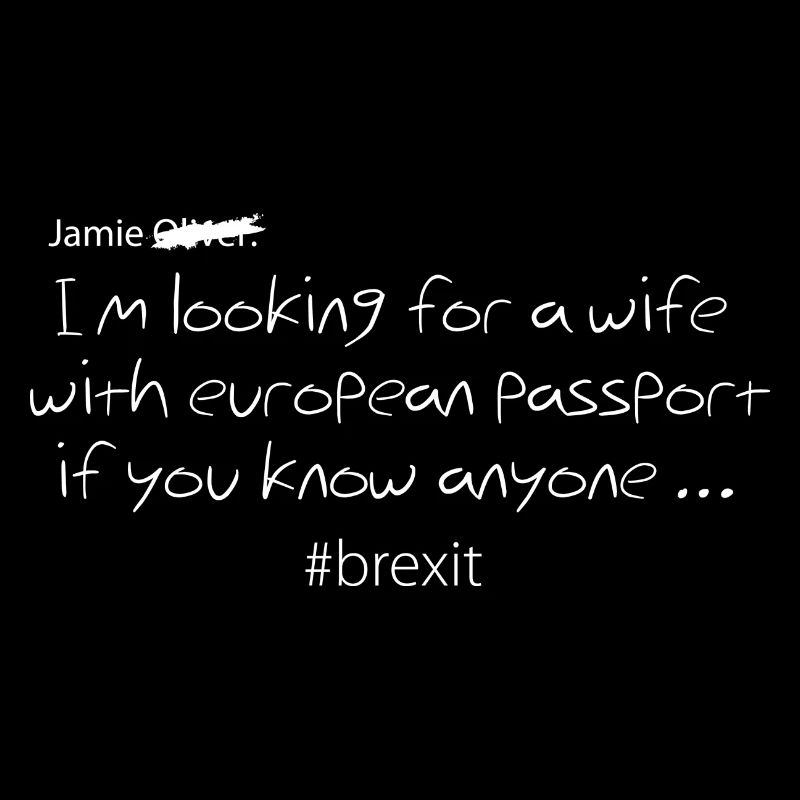 Jamie Oliver.
I m looking for a wife
with european passport
if you know anyone ...
#brexit